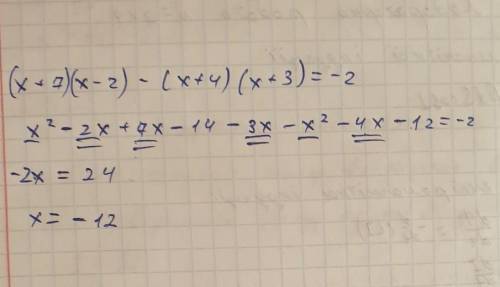 (x+7)(x-2) - (x+4)(x+3) = -2
x² - 2x + 7x - 14 - 3x - x² - 4x - 12 = -2
-2x = 24
x = -12